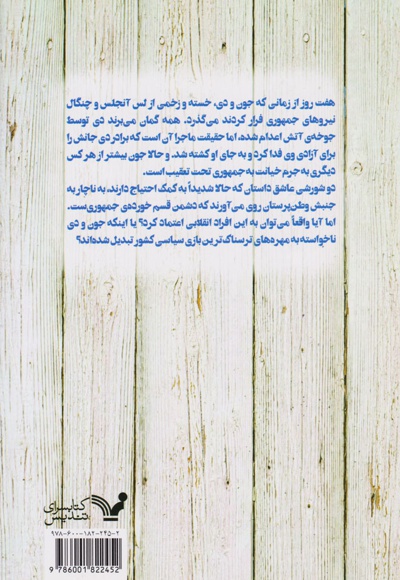 هفت روز از زمانی که جون و دی، خسته و زخمی از لس آنجلس و چنگال
نیروهای جمهوری فرار کردند می‌گذرد. همه گمان می‌برند دی توسط
جوخه‌ی آتش اعدام شده، اما حقیقت ماجرا آن است که برادر دی جانش را
برای آزادی وی فدا کرد و به جای او کشته شد. و حالا جون بیشتر از هر کس
دیگری به جرم خیانت به جمهوری تحت تعقیب است.
دو شورشی عاشق داستان که حالا شدیداً به کمک احتیاج دارند، به ناچار به
جنبش وطن‌پرستان روی می‌آورند که دشمن قسم خورده‌ی جمهوری‌ست.
اما آیا واقعاً می‌توان به این افراد انقلابی اعتماد کرد؟ یا اینکه جون و دی
ناخواسته به مهره‌های ترسناک‌ترین بازی سیاسی کشور تبدیل شده‌اند؟
کتابسرای
تندیس
۹۷۸-۶۰۰-۱۸۲-۲۴۵-۲
9 786001 822452